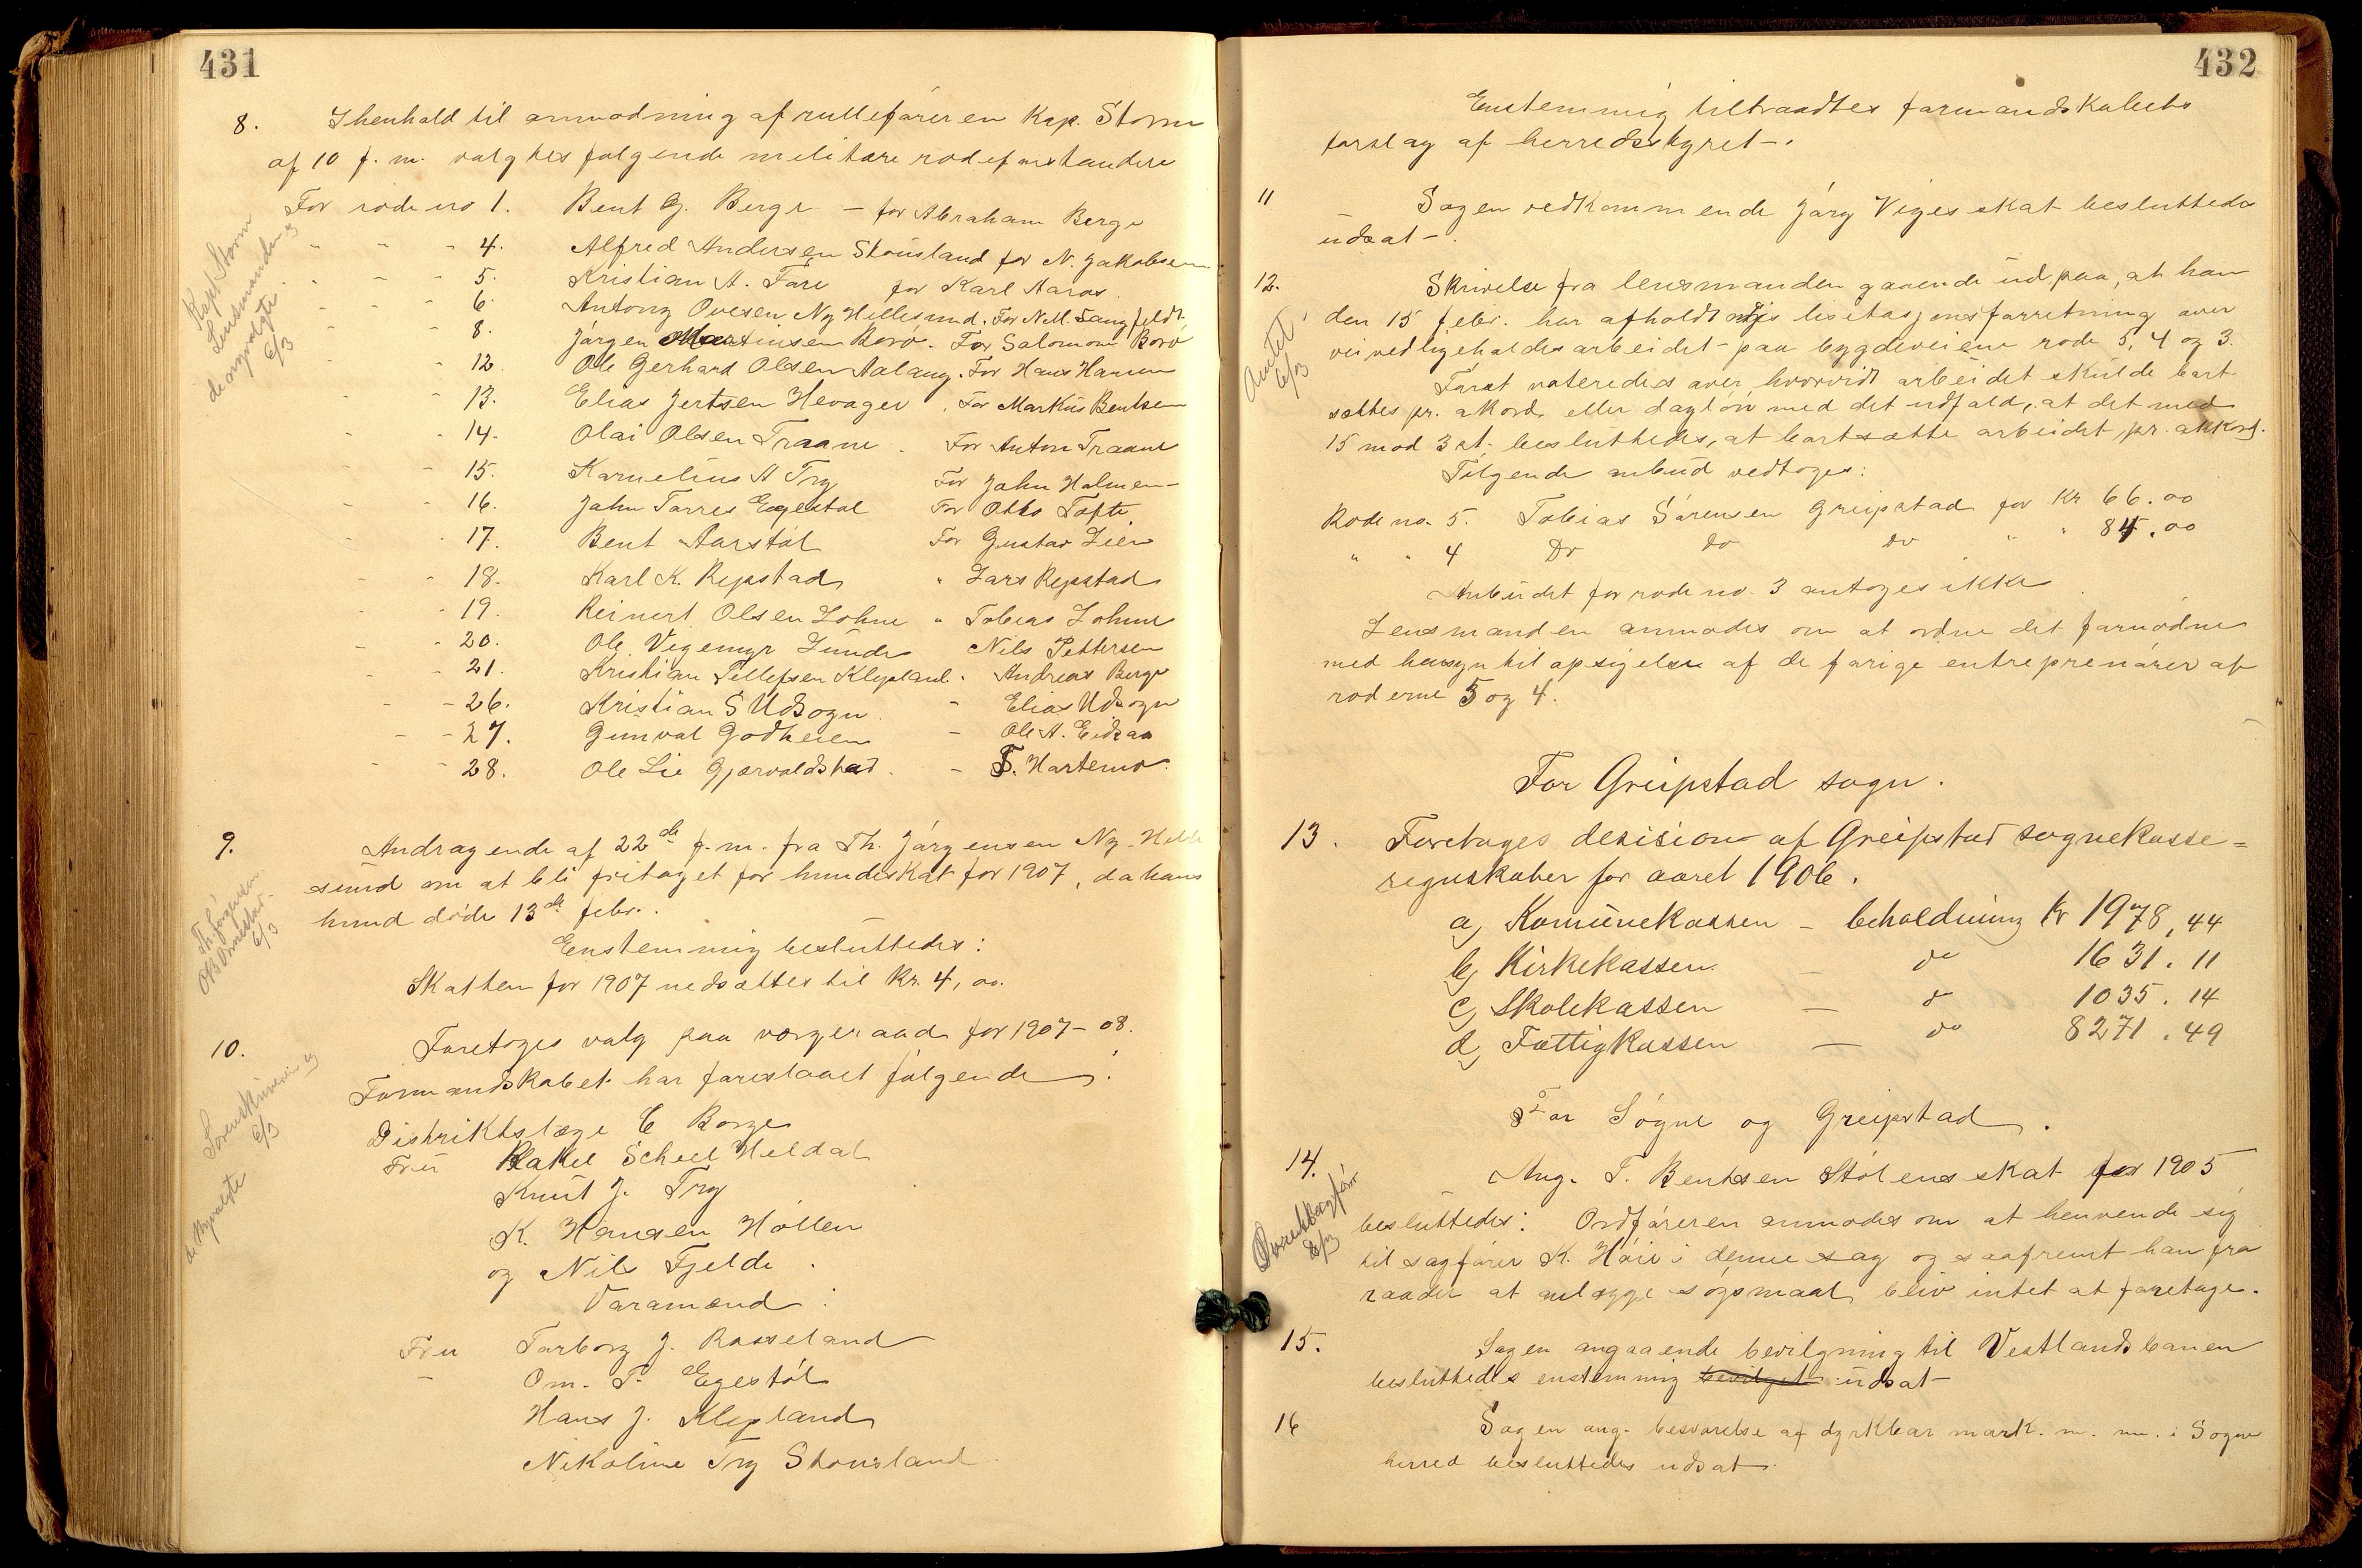 431
8. Ihenhold til anmodning af rulleføreren Kap. Storm
af 10 f. m. valgtes følgende militære rodeforstandere
For rode no 1. Bent G. Berge – for Abraham Berge
" " - 4. Alfred Andersen Skousland for N. Jakobsen
" - - 5. Kristian A. Fare for Karl Aaros.
- - - 6. Antony Ovesen Ny Hellesund. For N. M. Langfeldt
8. Jørgen Martinsen Borø. For Salomon Borø
- 12. Ole Gerhard Olsen Aalaug. For Hans Hansen
- - 13. Elias Jertsen Hevager. For Markus Bentsen
- - 14. Olai Olsen Traane. For Anton Traane
- - 15. Kornelius A Try For John Holmen-
- - 16. John Torres Eegestøl For Otto Tofte
- - 17. Bent Aarstøl For Gustav Lien
- - 18. Karl K. Repstad " Lars Repstad
- - 19. Reinert Olsen Lohne " Tobias Lohne
- - 20. Ole Vegemyr Lunde Nils Pettersen
- - 21. Kristian Tellefsen Klepland - Andreas Berge
- - 26. Kristian S Udsogn - Elias Udsogn
- - 27. Gunval Godheien - Ole A. Eidsaa
- - 28. Ole Lie Gjervoldstad. - T. Hartemo.
Kapt Storm
Lensmanden og
de nyvalgte
6/3
9. Andragende af 22de f. m. fra Th. Jørgensen Ny-Helle
sund om at bli fritaget for hundeskat for 1907, da hans
hund døde 13de febr.
Enstemmig besluttedes:
Skatten for 1907 nedsættes til Kr. 4,00.
Th Jørgensen
6/3
10. Foretoges valg paa vergeraad for 1907-08.
Formandskabet har foreslaaet følgende:
Distriktslæge C Borge
Fru Rakel Scheel Heldal
Knut J. Try
K. Hansen Høllen
og Nils Fjelde.
Varamænd:
Fru Torborg J. Rosseland
– Om. T. Egestøl
Hans J. Klepland
Nikoline Try Skousland.
Sorenskriveren og
de nyvalgte 6/3
432
Enstemmig tiltraadtes formandskabets
forslag af herredsstyret-.
11 Sagen vedkommende Jørg Viges skat besluttedes
udsat-.
12. Skrivelse fra lensmanden gaaende ud paa, at han
den 15 febr. har afholdt lisitasjonsforretning over
veivedligeholdesarbeidet paa bygdeveiene rode 5, 4 og 3.
Først voteredes over, hvorvidt arbeidet skulde bort-
sættes pr. akord eller dagløn med det udfald, at det med
15 mod 3 st. besluttedes, at bortsætte arbeidet pr. akkord.
Følgende anbud vedtoges:
Rode no. 5. Tobias Sørensen Greipstad for Kr 66.00
" " 4 Do do do " " 84.00
Anbudet for rode no. 3 antoges ikke
Lensmanden anmodes om at ordne det fornødne
med hensyn til opsigelse af de forige entreprenører af
roderne 5 og 4.
Amtet
6/3
For Greipstad sogn.
13. Foretoges desision af Greipstad sognekasse=
regnskaber for aaret 1906.
a, Komunekassen – beholdning Kr 1978,44
b, Kirkekassen – do 1631.11
c, Skolekassen – do 1035.14
d, Fattigkassen – do 8271.49
For Søgne og Greipstad.
14. Ang. T. Bentsen Stølens skat for 1905
besluttedes: Ordføreren anmodes om at henvende sig
til sagfører K. Høie i denne sag og saafremt han fra
raader at anlægge søgsmaal bliv intet at foretage.
6/3
15. Sagen angaaende bevilgning til Vestlandsbanen
besluttedes enstemmig bevilget udsat-
16 Sagen ang. besvarelse af dyrkbar mark. m. m. i Søgne
herred besluttedes udsat.